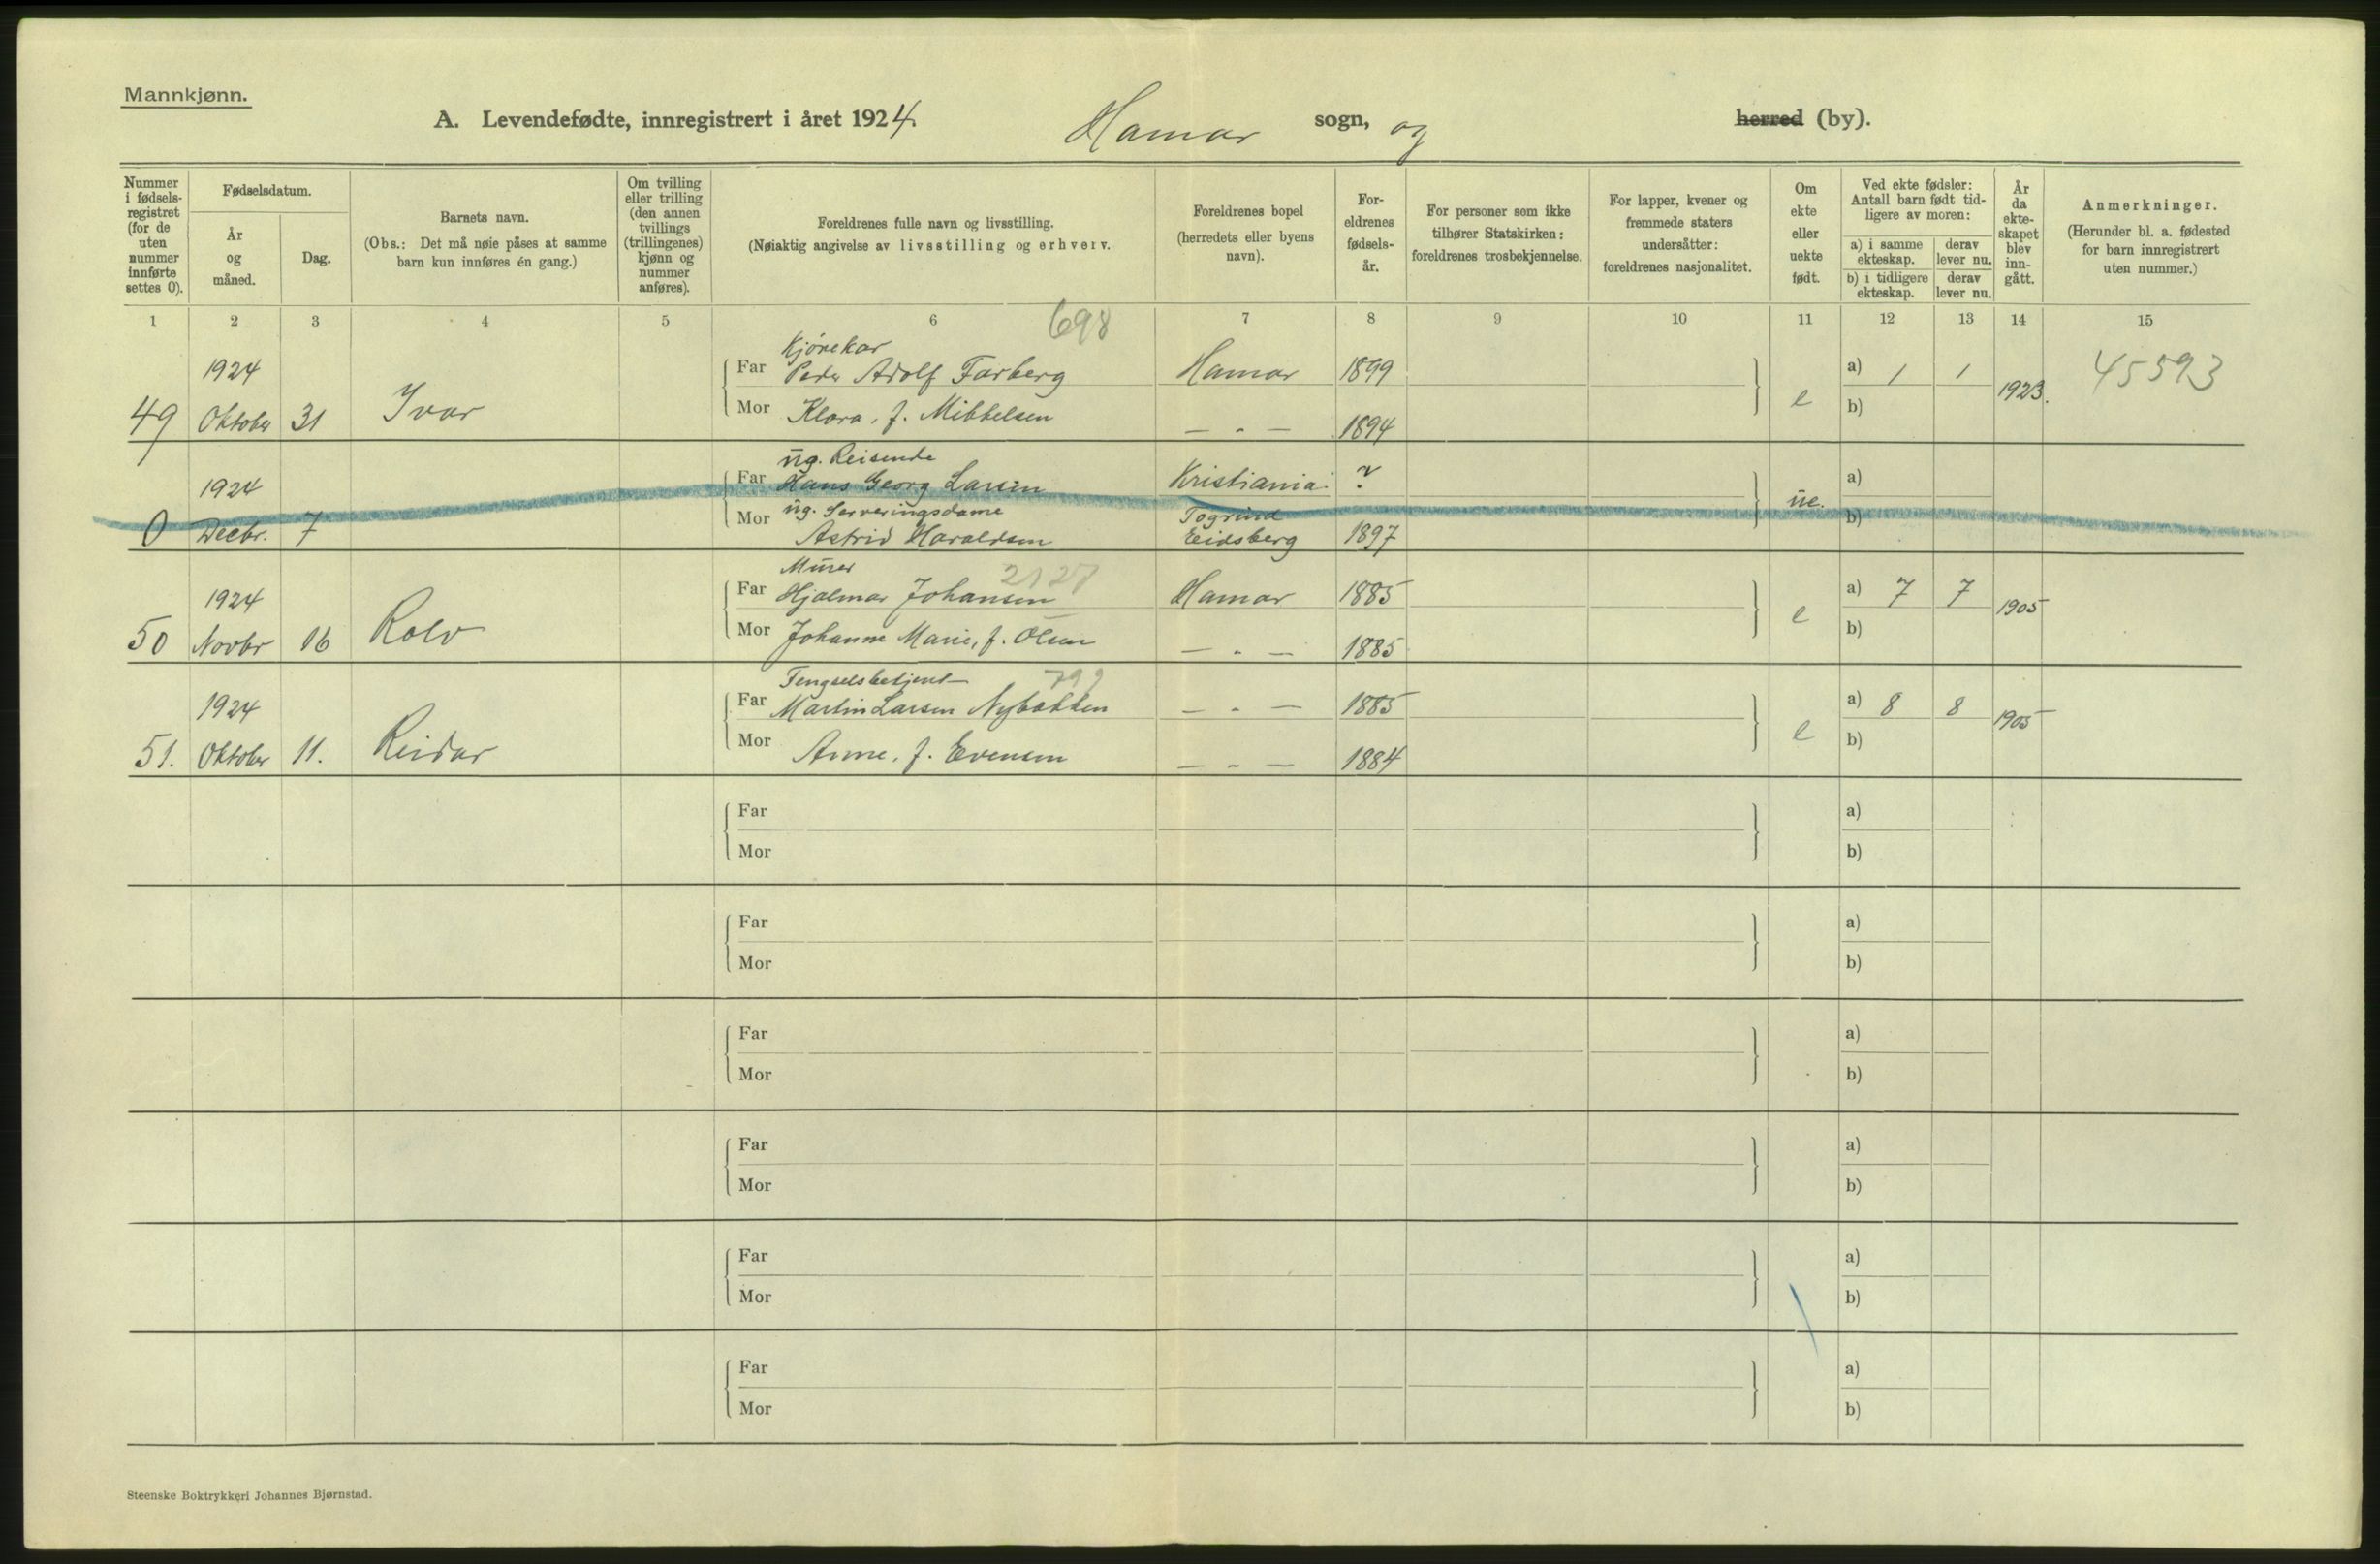 Mannkjønn.
A. Levendefødte, innregistrert i året 1924. Hamar sogn, og herred (by).
Nummer i fødsels-registret (for de uten nummer innførte settes 0).
Fødselsdatum.
År og måned.
Dag.
Barnets navn.
(Obs.: Det må nøie påses at samme barn kun innføres én gang.)
Om tvilling eller trilling (den annen tvillings (trillingenes) kjønn og nummer anføres).
Foreldrenes fulle navn og livsstilling.
(Nøiaktig angivelse av livsstilling og erhverv.
Foreldrenes bopel (herredets eller byens navn).
For-eldrenes fødsels-år.
For personer som ikke tilhører Statskirken: foreldrenes trosbekjennelse.
For lapper, kvener og fremmede staters undersåtter: foreldrenes nasjonalitet.
Om ekte eller uekte født.
Ved ekte fødsler: Antall barn født tid-ligere av moren:
a) i samme ekteskap.
derav lever nu.
b) i tidligere ekteskap.
derav lever nu.
År da ekte-skapet blev inn-gått.
Anmerkninger.
(Herunder bl. a. fødested for barn innregistrert uten nummer.)
1 2 3 4 5 6 7 8 9 10 11 12 13 14 15
698
Kjørekar
1924 Far Peder Adolf Farberg Hamar 1899 a) 1 1 1923. 45593
49 Oktober 31 Ivar Mor Klara, f. Mikkelsen — „ — 1894 e b)
ug. Reisende
1924 Far Hans Georg Larsen Kristiania ? a)
ug. Serveringsdame ue.
0 Decbr. 7 Mor Astrid Haraldsen Eidsberg 1897 b)
Murer 2127
1924 Far Hjalmar Johansen Hamar 1885 a) 7 7 1905
50 Novbr 16 Rolv Mor Johanne Marie, f. Olsen — „ — 1885 e b)
Fengselsbetjent 799
1924 Far Martin Larsen Nybakken — „ — 1885 a) 8 8 1905
51. Oktober 11. Reidar Mor Anne, f. Evensen — „ — 1884 e b)
Far a)
Mor b)
Far a)
Mor b)
Far a)
Mor b)
Far a)
Mor b)
Far a)
Mor b)
Far a)
Mor b)
Steenske Boktrykkeri Johannes Bjørnstad.